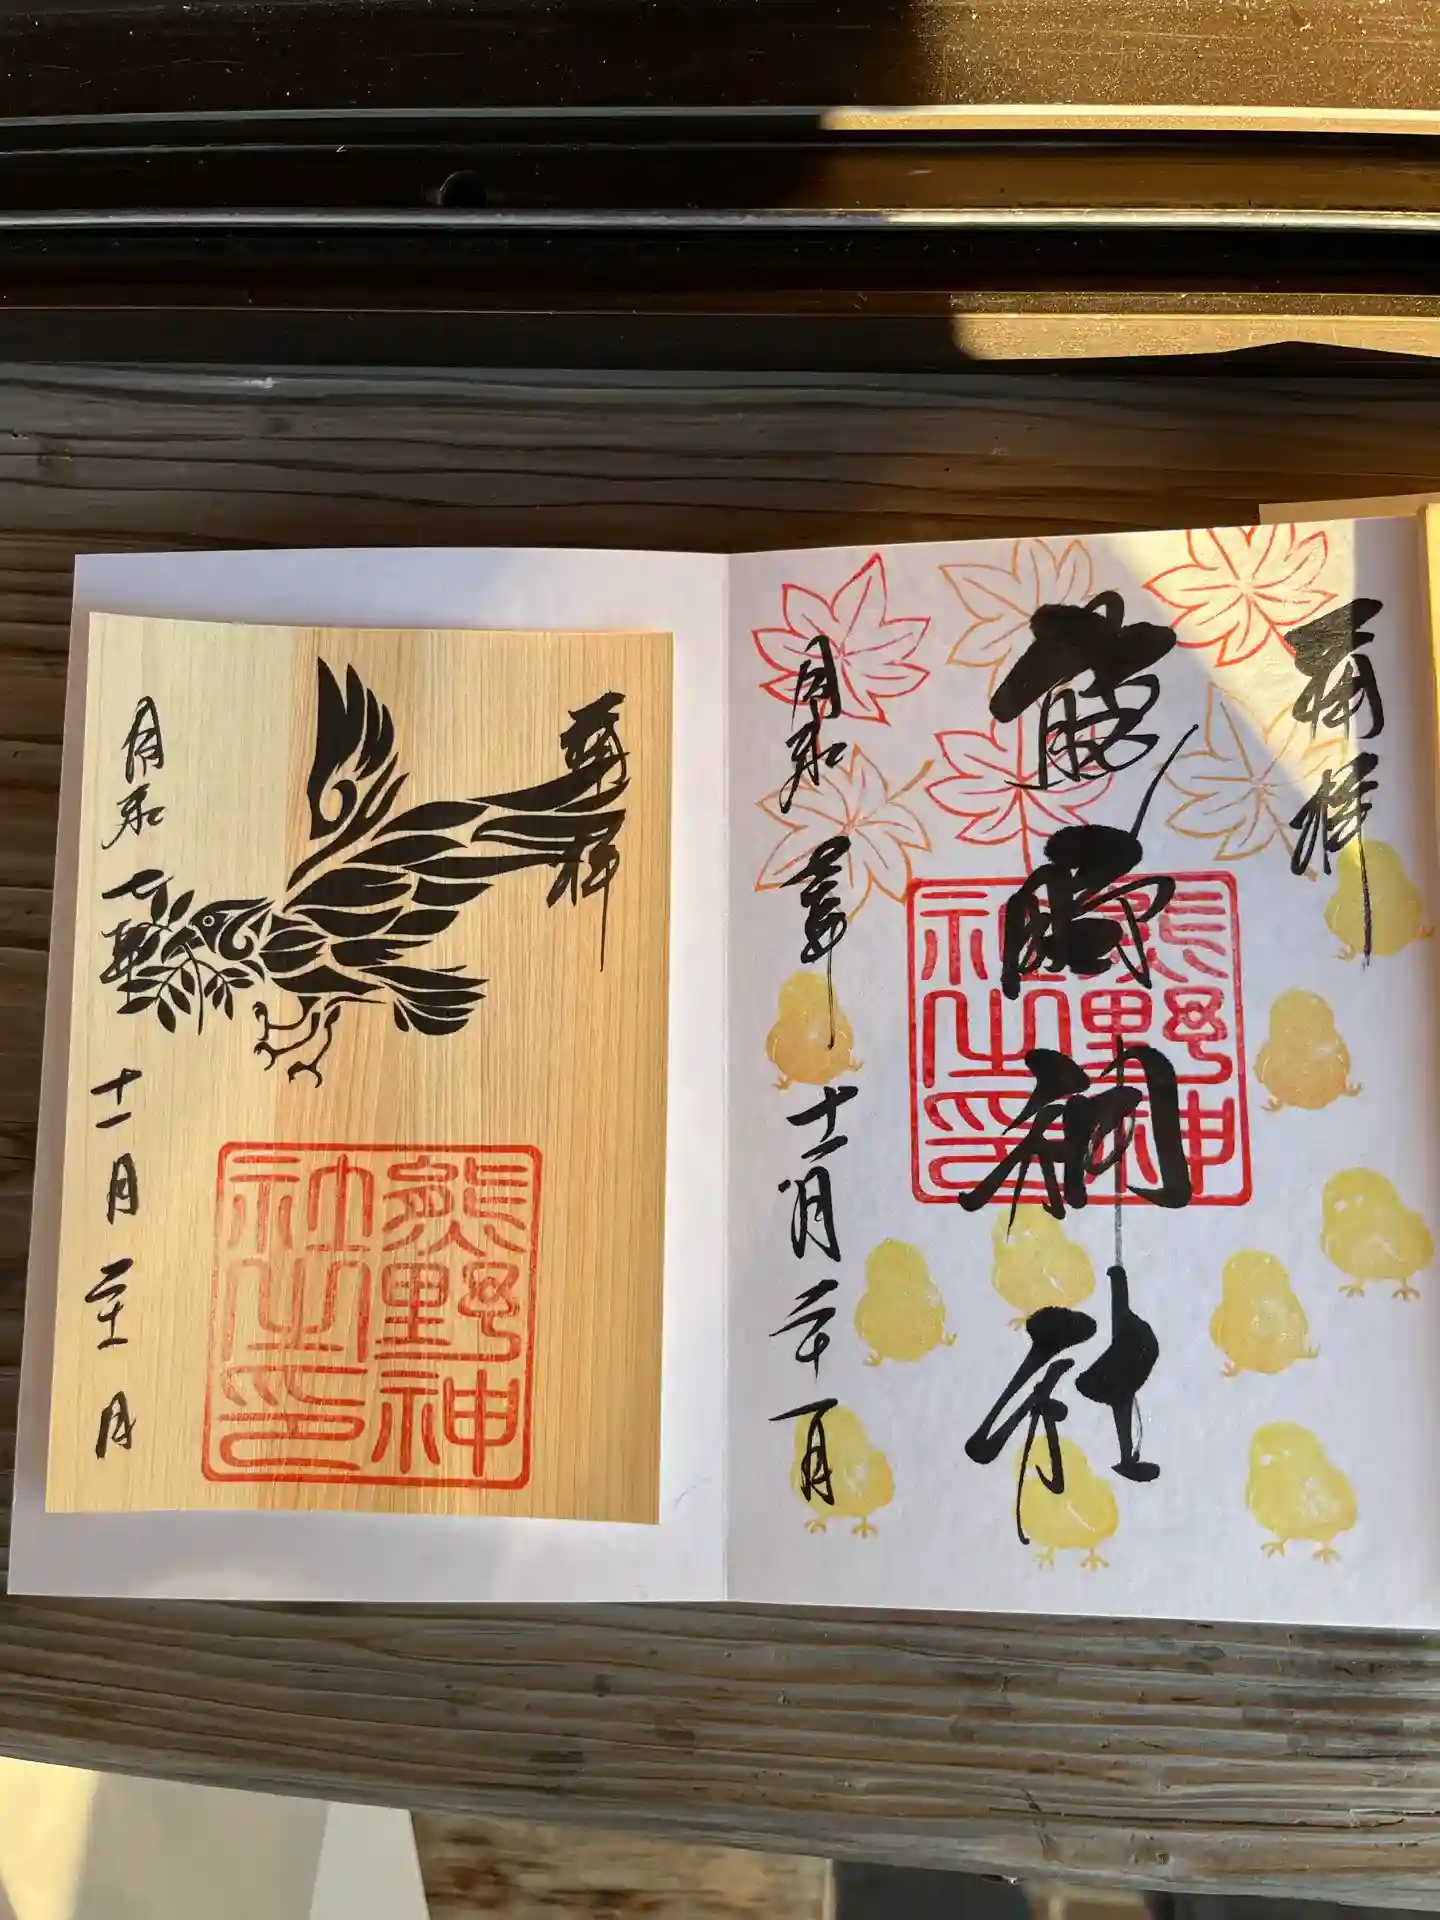 奉拝
熊野神社
熊野神
社之印
令和七年十一月二十一日
奉拝
熊野神
社之印
令和七年十一月二十一日